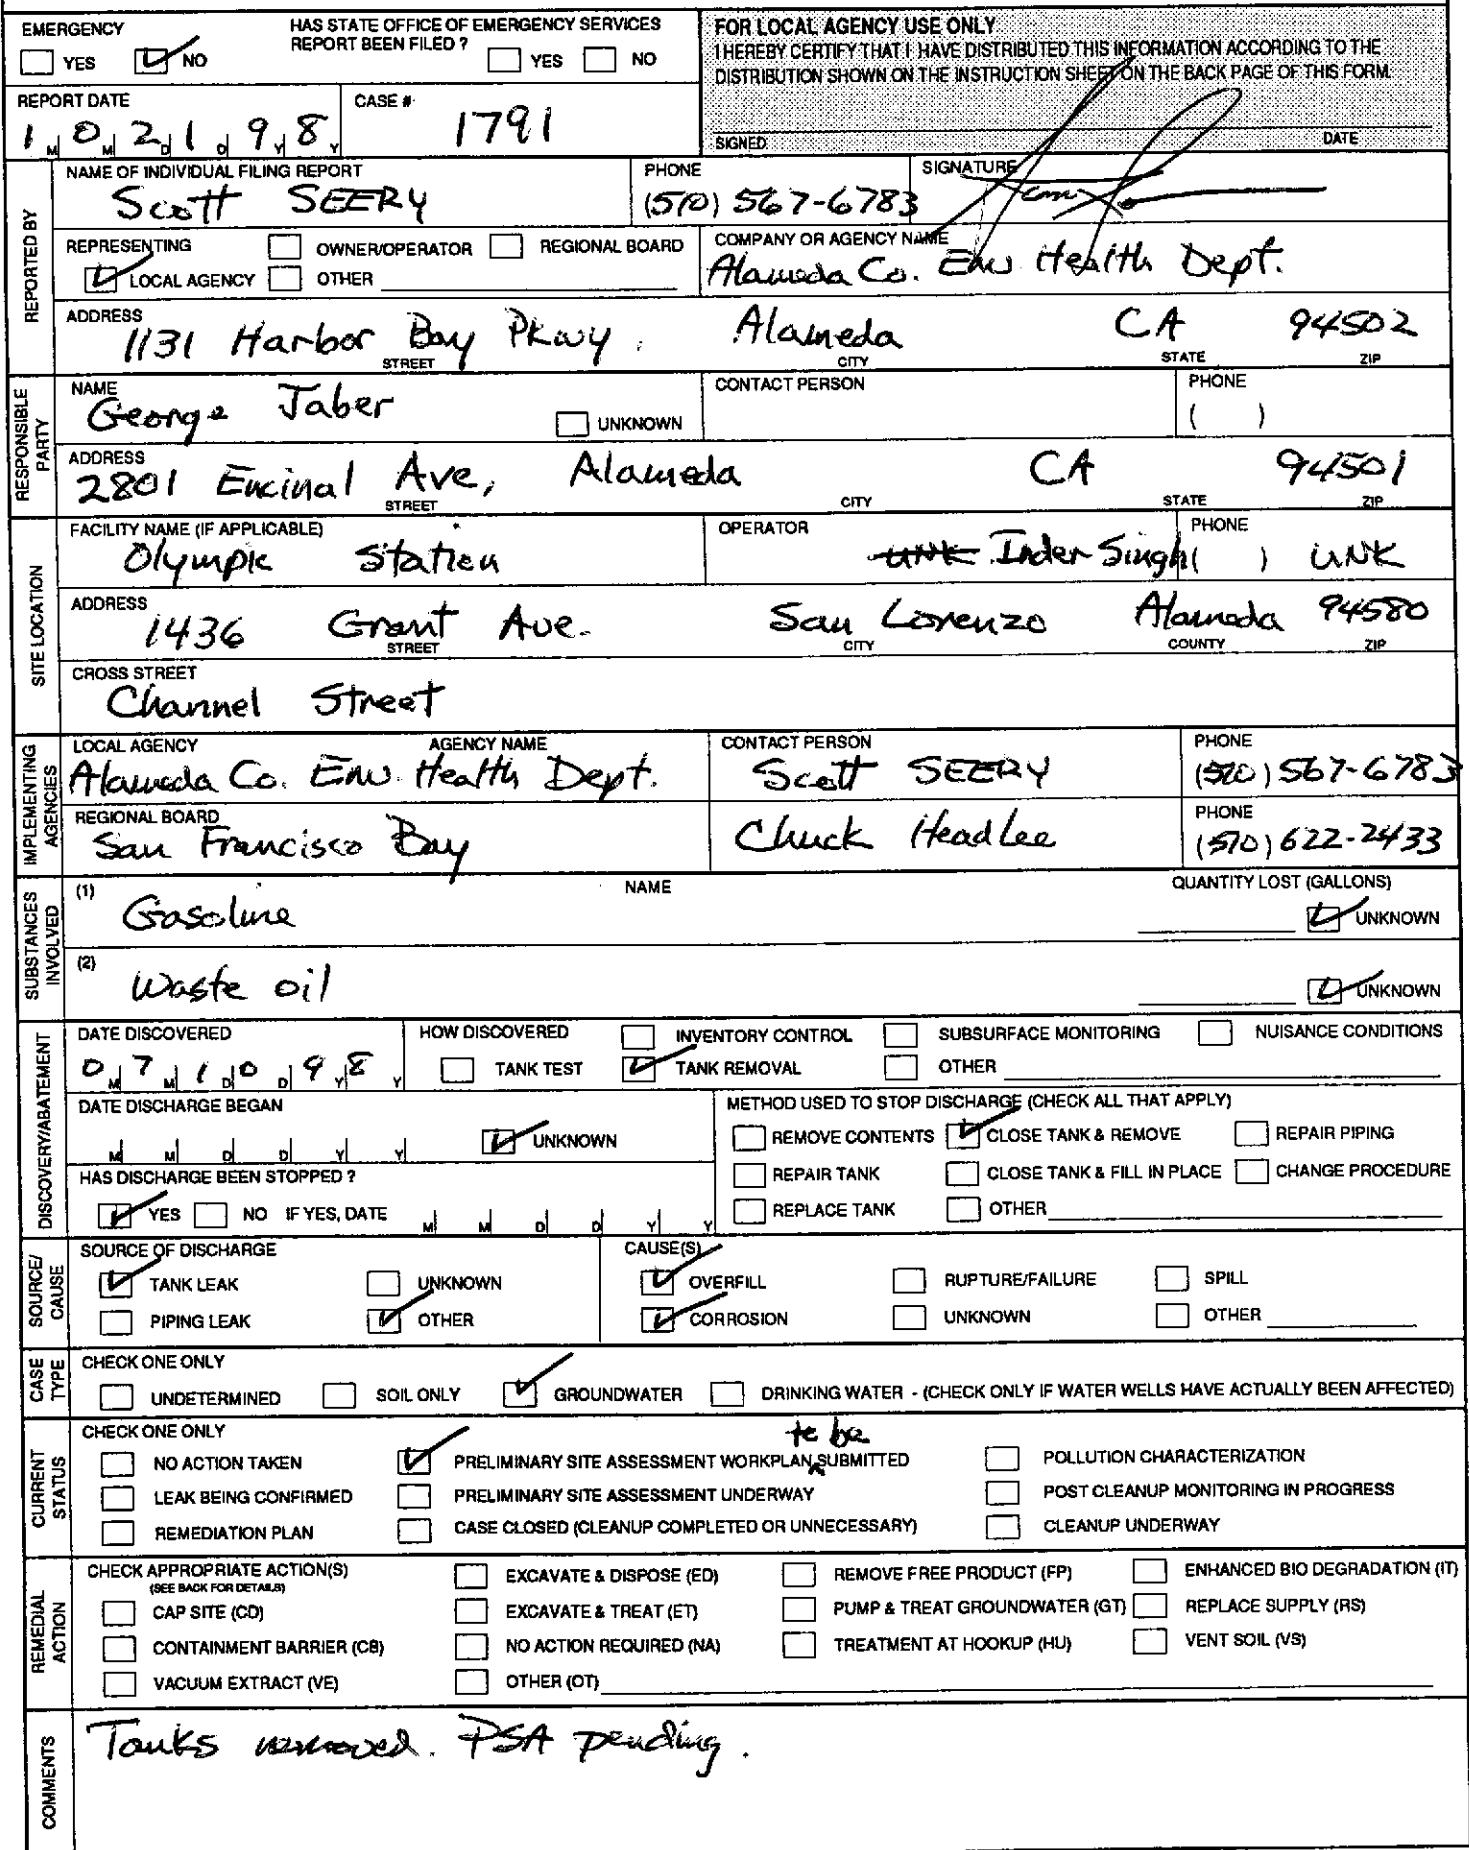 EMERGENCY
YES NO
HAS STATE OFFICE OF EMERGENCY SERVICES
REPORT BEEN FILED ?
YES NO
FOR LOCAL AGENCY USE ONLY
I HEREBY CERTIFY THAT I HAVE DISTRIBUTED THIS INFORMATION ACCORDING TO THE
DISTRIBUTION SHOWN ON THE INSTRUCTION SHEET ON THE BACK PAGE OF THIS FORM.
SIGNED DATE
REPORT DATE
1 M 0 M 2 D 1 D 9 Y 8 Y
CASE #
1791
REPORTED BY
NAME OF INDIVIDUAL FILING REPORT
Scott SEERY
PHONE
(510) 567-6783
SIGNATURE
REPRESENTING OWNER/OPERATOR REGIONAL BOARD
LOCAL AGENCY OTHER
COMPANY OR AGENCY NAME
Alameda Co. Env Health Dept.
ADDRESS
1131 Harbor Bay Pkwy. Alameda CA 94502
STREET CITY STATE ZIP
RESPONSIBLE
PARTY
NAME
George Jaber
UNKNOWN
CONTACT PERSON
PHONE
( )
ADDRESS
2801 Encinal Ave, Alameda CA 94501
STREET CITY STATE ZIP
SITE LOCATION
FACILITY NAME (IF APPLICABLE)
Olympic Station
OPERATOR
UNK Inder Singh
PHONE
( ) UNK
ADDRESS
1436 Grant Ave. San Lorenzo Alameda 94580
STREET CITY COUNTY ZIP
CROSS STREET
Channel Street
IMPLEMENTING
AGENCIES
LOCAL AGENCY AGENCY NAME
Alameda Co. Env. Health Dept.
CONTACT PERSON
Scott SEERY
PHONE
(510) 567-6783
REGIONAL BOARD
San Francisco Bay
Chuck Headlee
PHONE
(510) 622-2433
SUBSTANCES
INVOLVED
(1) NAME QUANTITY LOST (GALLONS)
Gasoline UNKNOWN
(2)
Waste oil UNKNOWN
DISCOVERY/ABATEMENT
DATE DISCOVERED
0 M 7 M 1 D 0 D 9 Y 8 Y
HOW DISCOVERED INVENTORY CONTROL SUBSURFACE MONITORING NUISANCE CONDITIONS
TANK TEST TANK REMOVAL OTHER
DATE DISCHARGE BEGAN
M M D D Y Y UNKNOWN
METHOD USED TO STOP DISCHARGE (CHECK ALL THAT APPLY)
REMOVE CONTENTS CLOSE TANK & REMOVE REPAIR PIPING
REPAIR TANK CLOSE TANK & FILL IN PLACE CHANGE PROCEDURE
REPLACE TANK OTHER
HAS DISCHARGE BEEN STOPPED ?
YES NO IF YES, DATE M M D D Y Y
SOURCE/
CAUSE
SOURCE OF DISCHARGE
TANK LEAK UNKNOWN
PIPING LEAK OTHER
CAUSE(S)
OVERFILL RUPTURE/FAILURE SPILL
CORROSION UNKNOWN OTHER
CASE
TYPE
CHECK ONE ONLY
UNDETERMINED SOIL ONLY GROUNDWATER DRINKING WATER - (CHECK ONLY IF WATER WELLS HAVE ACTUALLY BEEN AFFECTED)
CURRENT
STATUS
CHECK ONE ONLY
to be
NO ACTION TAKEN PRELIMINARY SITE ASSESSMENT WORKPLAN SUBMITTED POLLUTION CHARACTERIZATION
LEAK BEING CONFIRMED PRELIMINARY SITE ASSESSMENT UNDERWAY POST CLEANUP MONITORING IN PROGRESS
REMEDIATION PLAN CASE CLOSED (CLEANUP COMPLETED OR UNNECESSARY) CLEANUP UNDERWAY
REMEDIAL
ACTION
CHECK APPROPRIATE ACTION(S)
(SEE BACK FOR DETAILS)
EXCAVATE & DISPOSE (ED) REMOVE FREE PRODUCT (FP) ENHANCED BIO DEGRADATION (IT)
CAP SITE (CD) EXCAVATE & TREAT (ET) PUMP & TREAT GROUNDWATER (GT) REPLACE SUPPLY (RS)
CONTAINMENT BARRIER (CB) NO ACTION REQUIRED (NA) TREATMENT AT HOOKUP (HU) VENT SOIL (VS)
VACUUM EXTRACT (VE) OTHER (OT)
COMMENTS
Tanks removed. PSA pending.